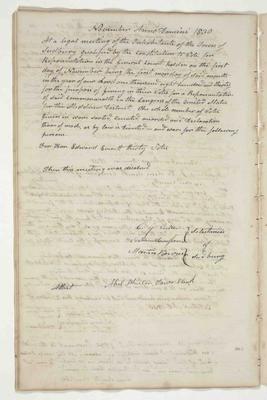 November Anno Domini 1830
At a legal meeting of the Inhabitants of the Town of
Sudbury qualified by the constitution to Vote for
Representatives in the general Court holden on the first
day of November being the first monday of said month
in the year of our Lord one thousand eight hundred and thirty
for the purpose of giving in their Votes for a Representative
of said Commonwealth in the Congress of the United States
for the District the whole number of Votes
given in were sorted counted recorded and Declaration
thereof made as by law is directed and were for the following
person
Hon Edward Everett thirty Votes
Then this meeting was dissolved
Selectmen
of
Sudbury
Attest
Town Clerk